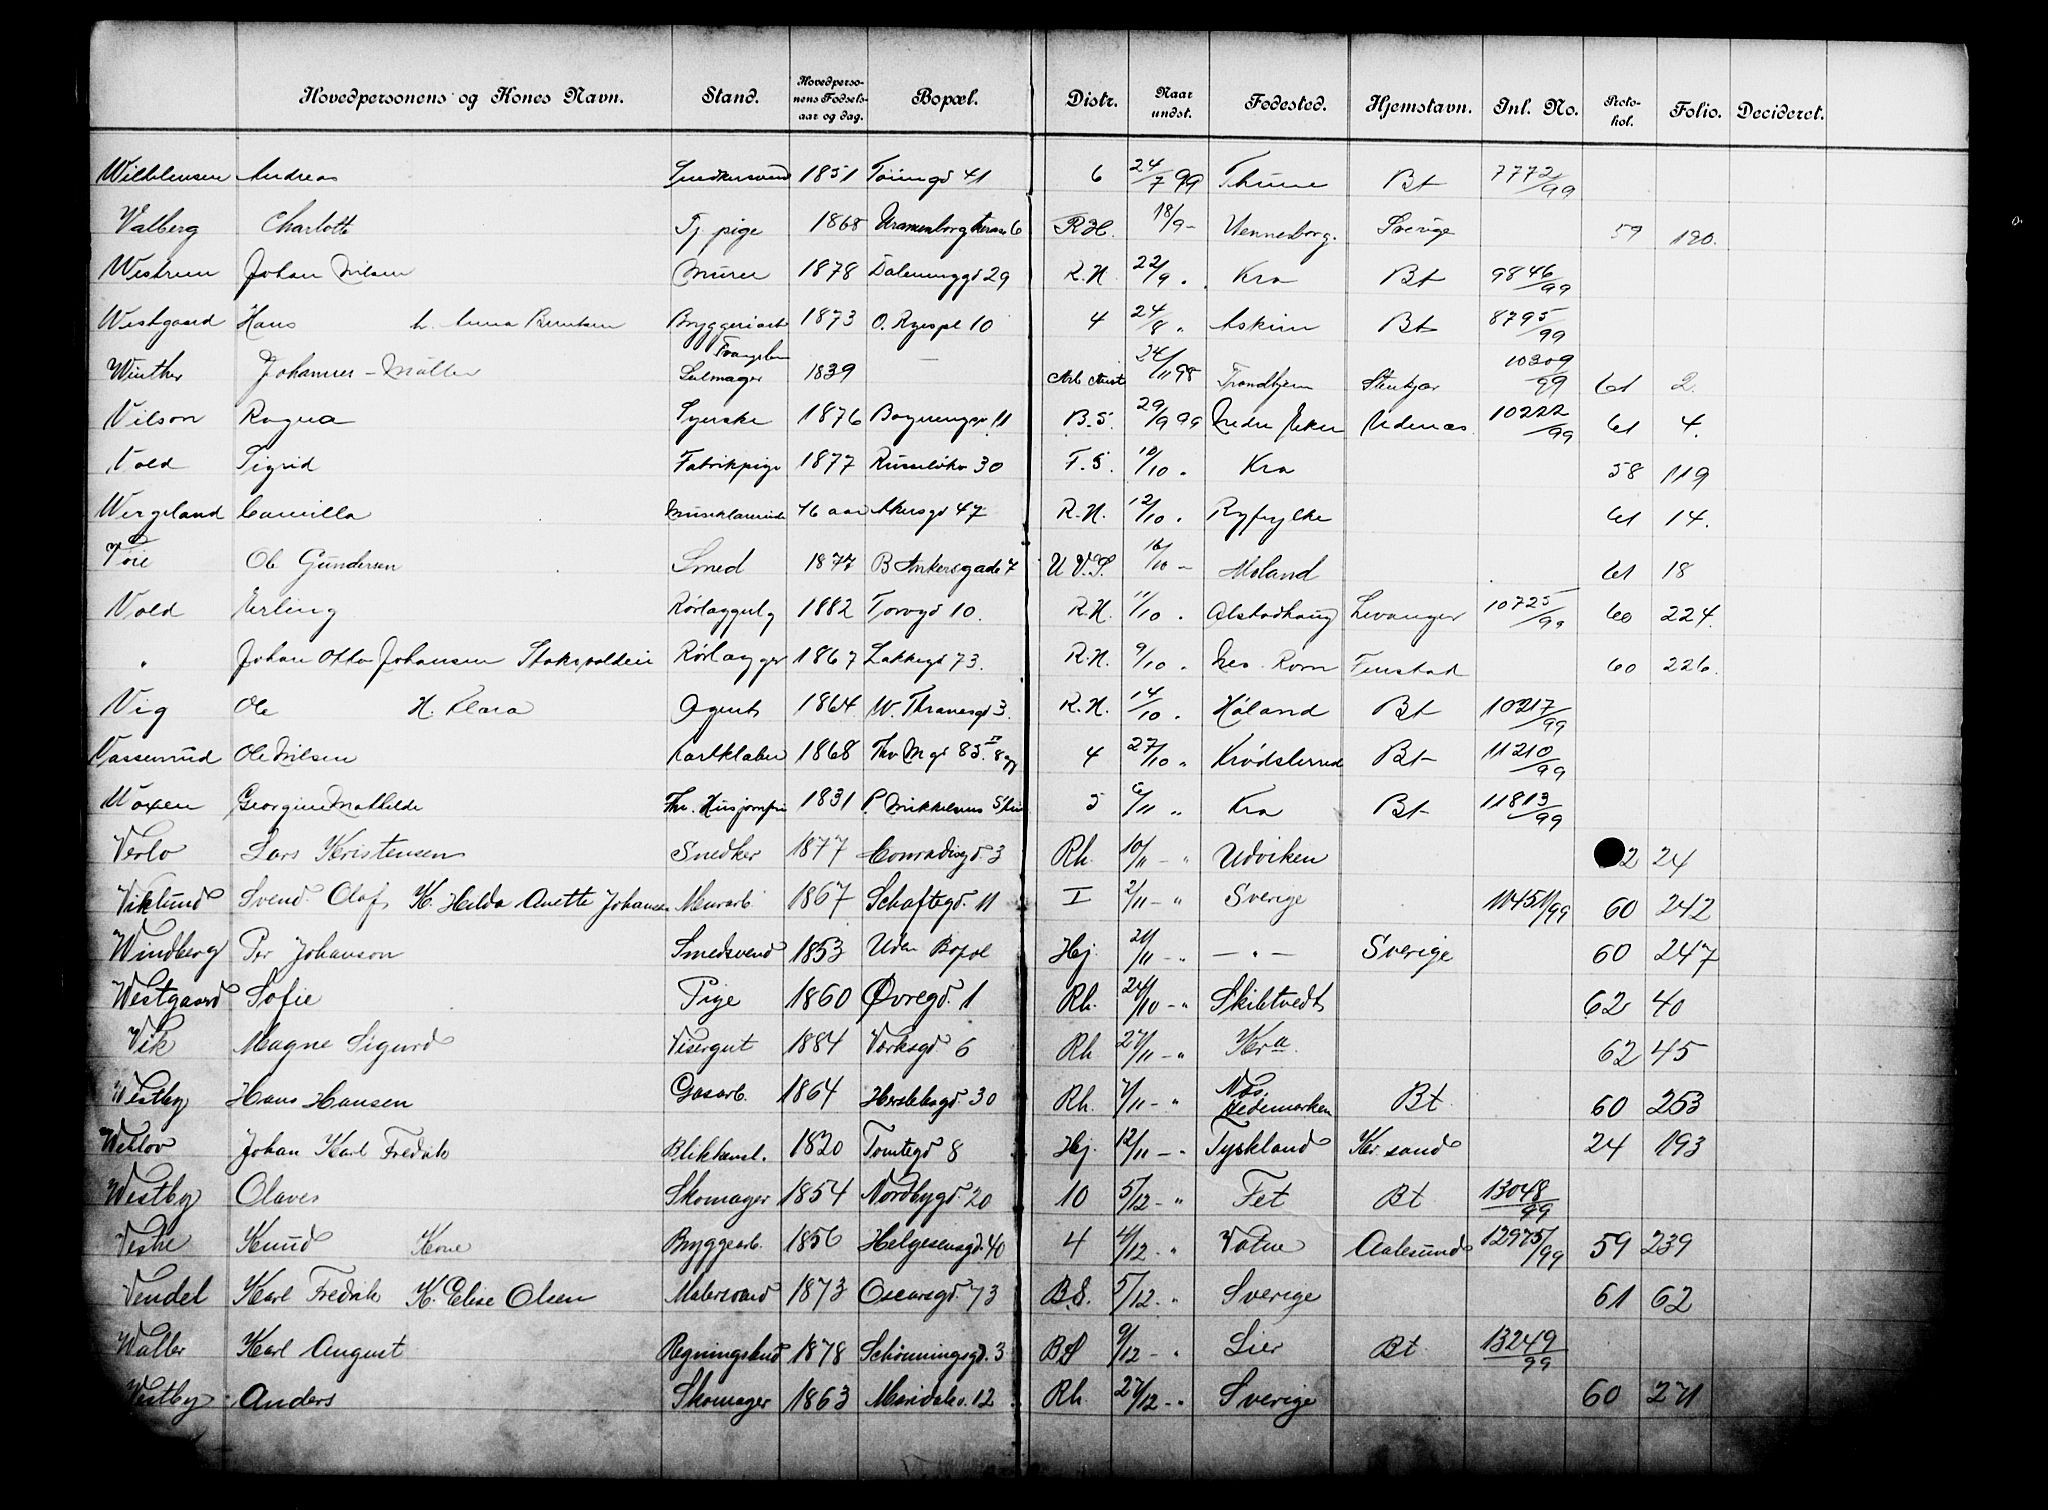 Hovedpersonens og Kones Navn. Stand. Hovedpersonens Fødselsaar og dag. Bopæl. Distr. Naar undst. Fødested. Hjemstavn. Inl. No. Protokol. Folio. Decideret.
Andreas 1851 41 6 24/7 99 Thune Bt 7772/99
Valberg Charlotte Tj. pige 1868 6 R.H. 18/9 - Wennesborg. Sverige 59 190.
Westrum Johan Nilsen Murer 1878 29 R.H. 22/9 " Kra Bt 9846/99
Westgaard Hans h. Anna Berntsen Bryggeriarb 1873 O. Ryespl 10 4 24/8 " Askim Bt 8795/99
Winther Johannes Møller Salmager 1839 — 24/11 98 Trondhjem Stenkjær 10309/99 61 2.
Vilson Ragna Syerske 1876 11 B.S. 29/9 99 Nedre Eker Udenæs 10222/99 61 4.
Vold Sigrid Fabrikpige 1877 Russeløkv 30 F.S. 10/10 " Kra 58 119
Wergeland Camilla Musiklærerinde 46 aar Akersgd 47 R.H. 12/10 " Ryfylke 61 14.
Ole Gundersen Smed 1877 B Ankersgade 7 U V.S. 16/10 - Moland 61 18
Vold Erling Rørlæggerlg 1882 Torvgd 10. R.H. 11/10 " Alstadhaug Levanger 10725/99 60 224.
" Johan Otto Johansen Rørlægger 1867 Lakkegd 73. R.H. 9/10 " Nes. Rom Finstad 60 226.
Vig Ole H. Klara Agent 1864 W. Thranesgd 3. R.H. 14/10 " Høland Bt 10217/99
Vassenrud Ole Nilsen 1868 Thv M gd 85 4 27/10 " Krødsherred Bt 11210/99
Voxen Georgine Mathilde Fhv. Husjomfru 1831 P. Mikkelsens Stift 5 6/11 " Kra Bt 11813/99
Verlo Lars Kristensen Snedker 1877 Conradisgd. 3 Rh. 10/11 - " Udviken 62 24
Viklund Svend Olaf K. Hilda Anette Johansen Murarb. 1867 Schaftegd. 11 I 2/11 - " Sverige 11451/99 60 242
Windberg Per Johanson Smedsvend 1853 Uden Bopæl Hej. 21/11 - " — " — Sverige 60 247
Westgaard Sofie Pige 1860 Øvregd. 1 Rh. 24/10 - " Skibtvedt 62 40
Vik Magne Sigurd Visergut 1884 Verksgd 6 Rh 27/11 - " Kra. 62 45
Westby Hans Hansen Gasarb. 1864 Herslebsgd 30 Rh. 7/11 - " Nes Hedemarken Bt. 60 253
Johan Karl Fredrik Blikkensl. 1820 Tomtegd 8 Hej. 12/11 - " Tyskland Kr. sand 24 193
Westby Olaves Skomager 1854 Nordbygd. 20 10 5/12 - " Fet Bt 13048/99
Vestre Knud Kone Bryggearb. 1856 Helgesensgd. 40 4 4/12 - " Vatne Aalesund 12975/99 59 239
Vendel Karl Fredrik K. Elise Olsen Malersvend 1873 Oscarsgd. 73 B.S. 5/12 - " Sverige 61 62
Waller Karl August Regningsbud 1878 Schønningsgd. 3 BS 9/12 - " Lier Bt 13249/99
Westby Anders Skomager 1863 Maridalsv. 12 Rh 27/12 - " Sverige 60 271